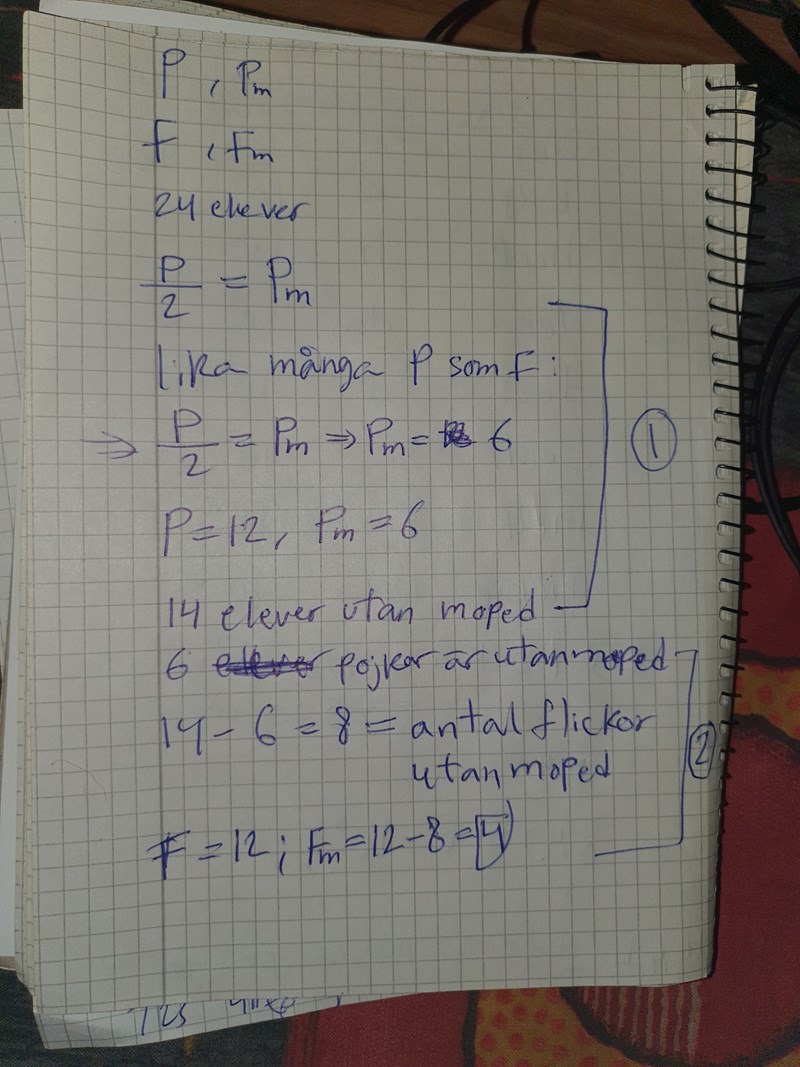 P, Pm
F, Fm
24 elever
P/2 = Pm
lika många P som F:
⇒ P/2 = Pm ⇒ Pm = 6
P=12, Pm = 6
14 elever utan moped
6 pojkar är utan moped
14 - 6 = 8 = antal flickor
utan moped
F = 12; Fm = 12-8 = 4
1
2